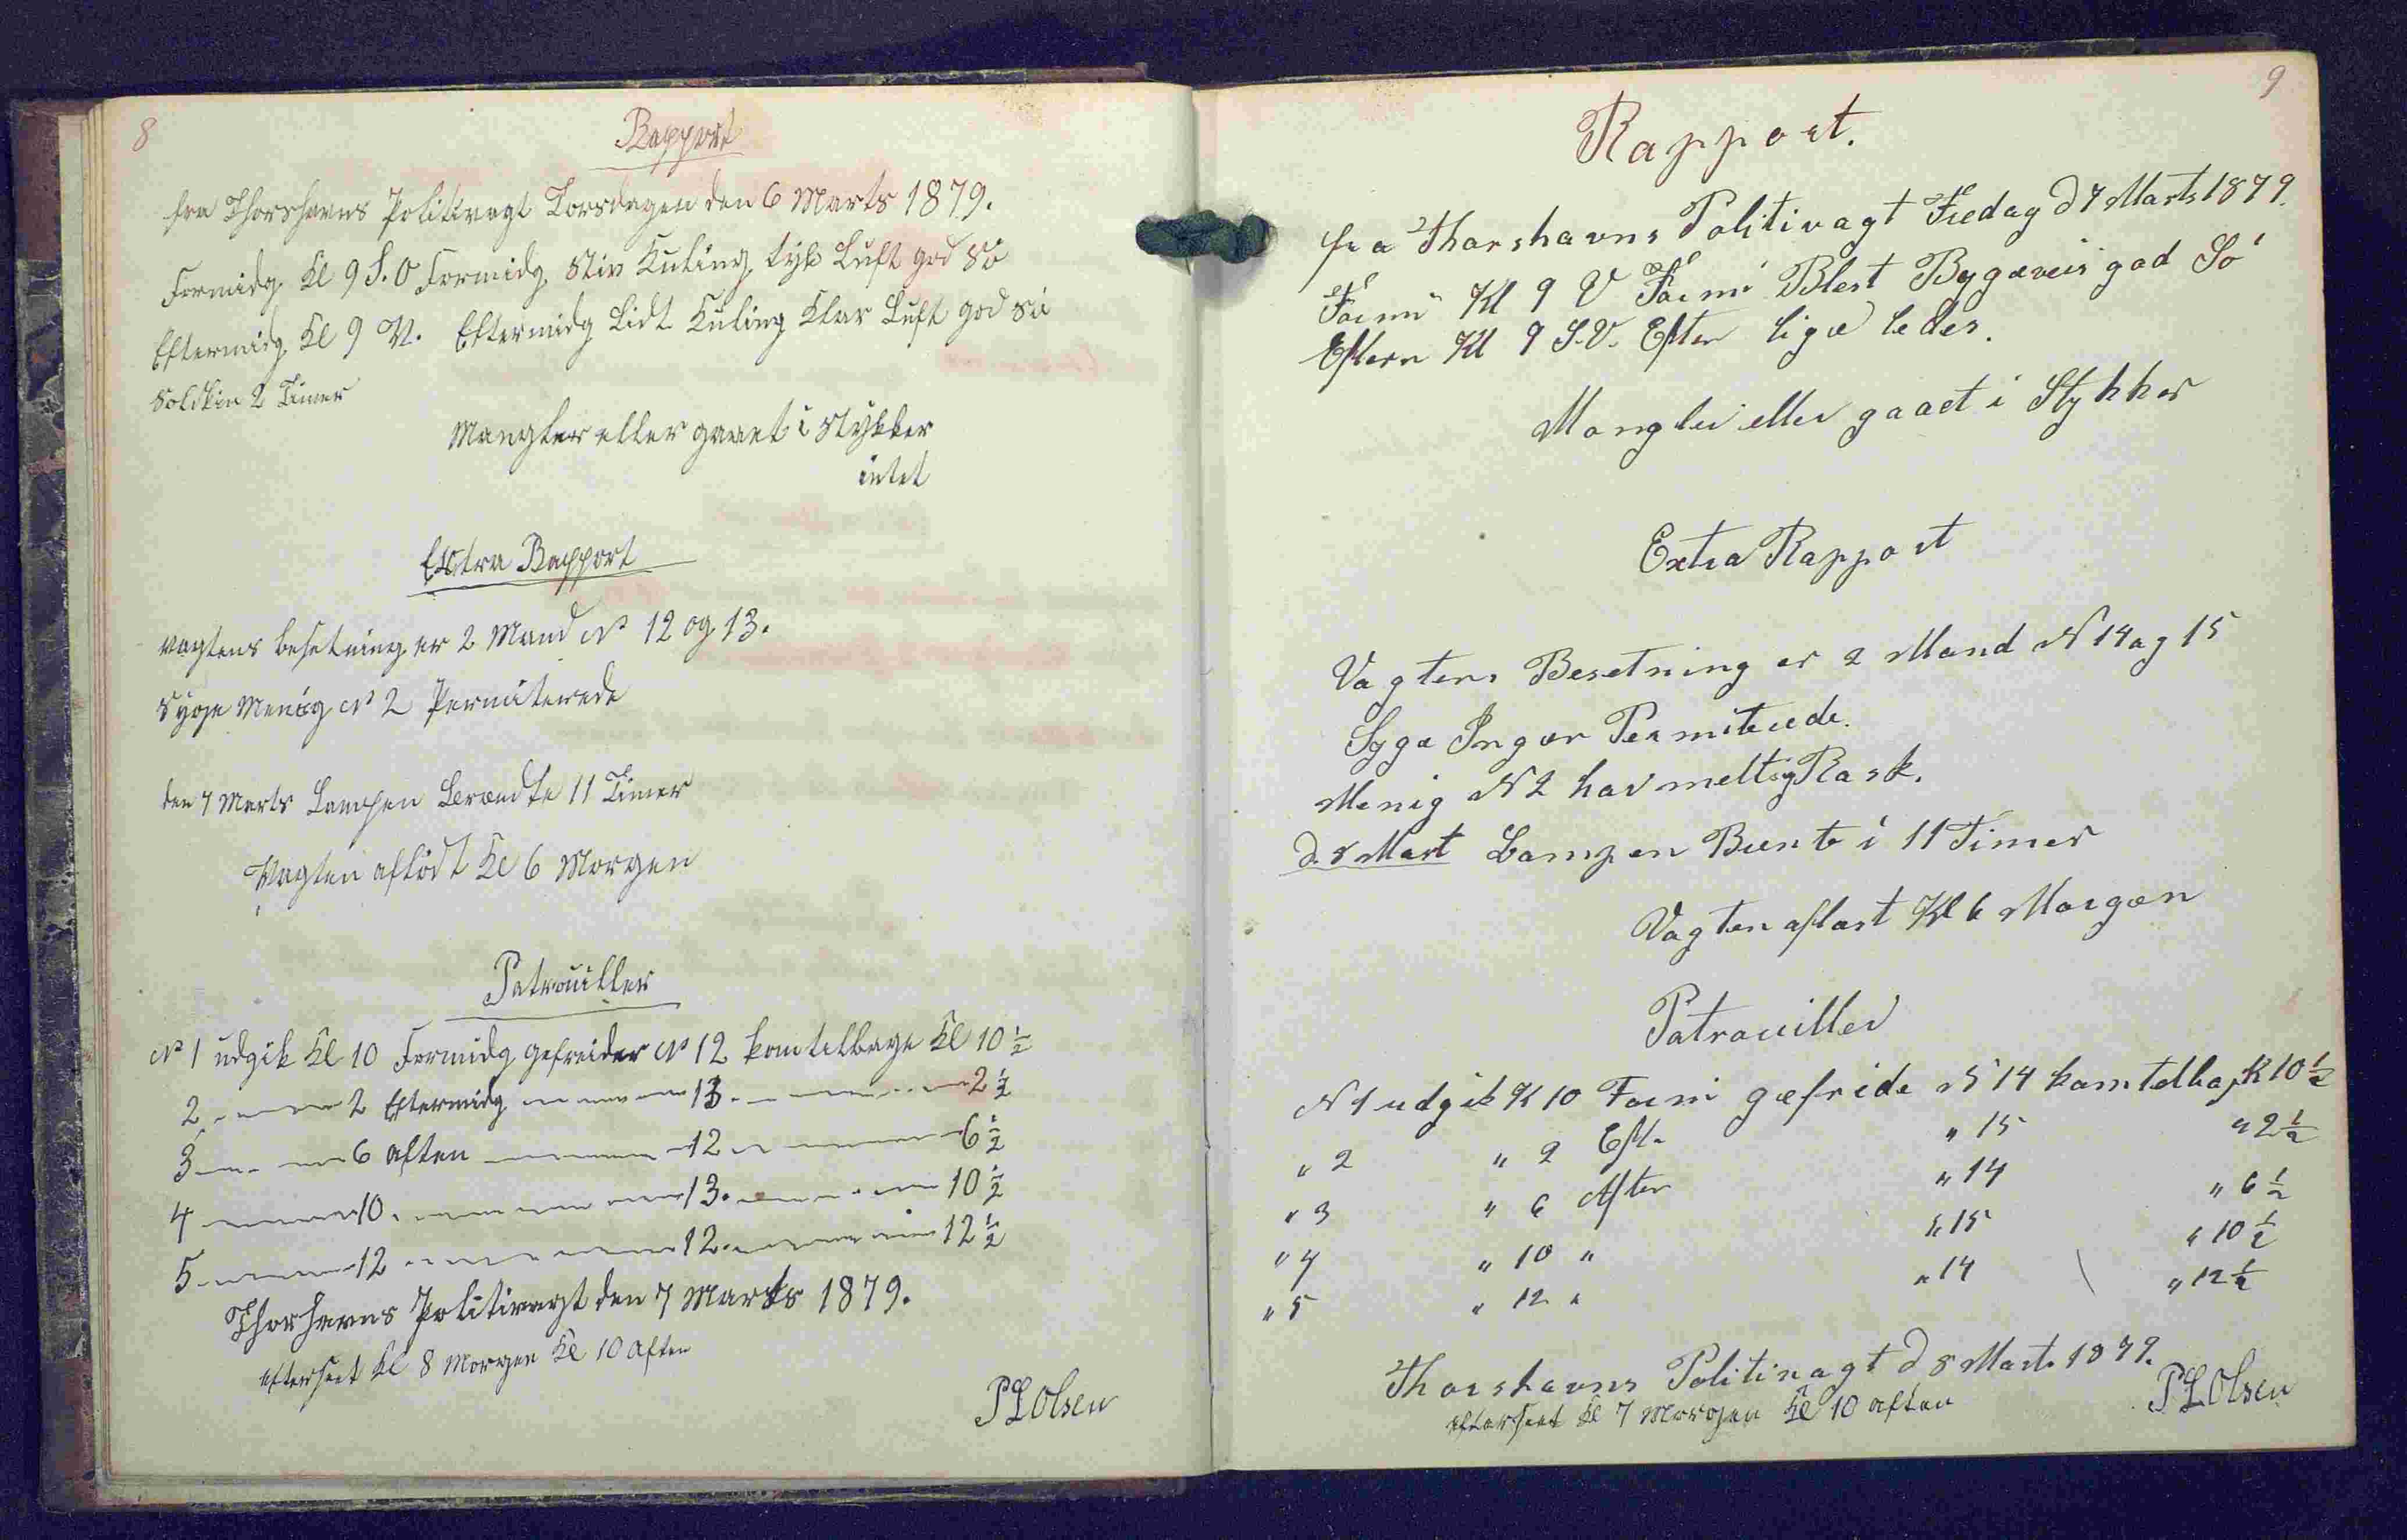 8
Rapport
fra Thorshavns Politivagt Torsdagen den 6 Marts 1879.
Formidg Kl 9 S.O Formidg Stiv Kuling tyk Luft god Sö
Eftermidg Kl 9 V. Eftermidg Lidt Kuling Klar Luft god Sö
Solskin 2 Timer
Mangler eller gaaet i Stykker
intet
Extra Rapport
Vagtens besetning er 2 Mand No 12 og 13.
Syge Menig No 2 Permiterede
den 7 Marts Lampen Brændte 11 Timer
Vagten aflöst Kl 6 Morgen
Patrouiller
No 1 udgik Kl 10 Formidg gefreider No 12 kom tilbage Kl 10 1/2
2 2 Eftermidg 13. 2 1/2
3 6 Aften 12 6 1/2
4 10. 13. 10 1/2
5 12 12. 12 1/2
Thorhavns Politivagt den 7 Marts 1879.
efterseet Kl 8 Morgen Kl 10 Aften
PLOlsen
9
Rapport.
fra Thorshavns Politivagt Fredag d 7 Marts 1879.
Formi Kl 9 V Formi Blest Bygæveir god Sö
Eftern Kl 9 S.V. Efter ligæledes.
Mangler eller gaaet i Stykker
Extra Rapport
Vagtens Besetning er 2 Mand N 14 og 15
Syge Ingær Permiterede.
Menig N 2 har melt sig Rask.
d. 8 Mart Lampen Brente i 11 Timer
Vagten aflast Kl 6 Morgæn
Patrouiller
N 1 udgik K 10 Formi gæfride N 14 kom telbag K 10 1/2
" 2 " 2 Eft. " 15 " 2 1/2
" 3 " 6 Aften " 14 " 6 1/2
" 4 " 10 " " 15 " 10 1/2
" 5 " 12 " " 14 " 12 1/2
Thorshavns Politivagt d 8 Mart. 1879.
efterseet Kl 7 Morgen Kl 10 Aften
PLOlsen